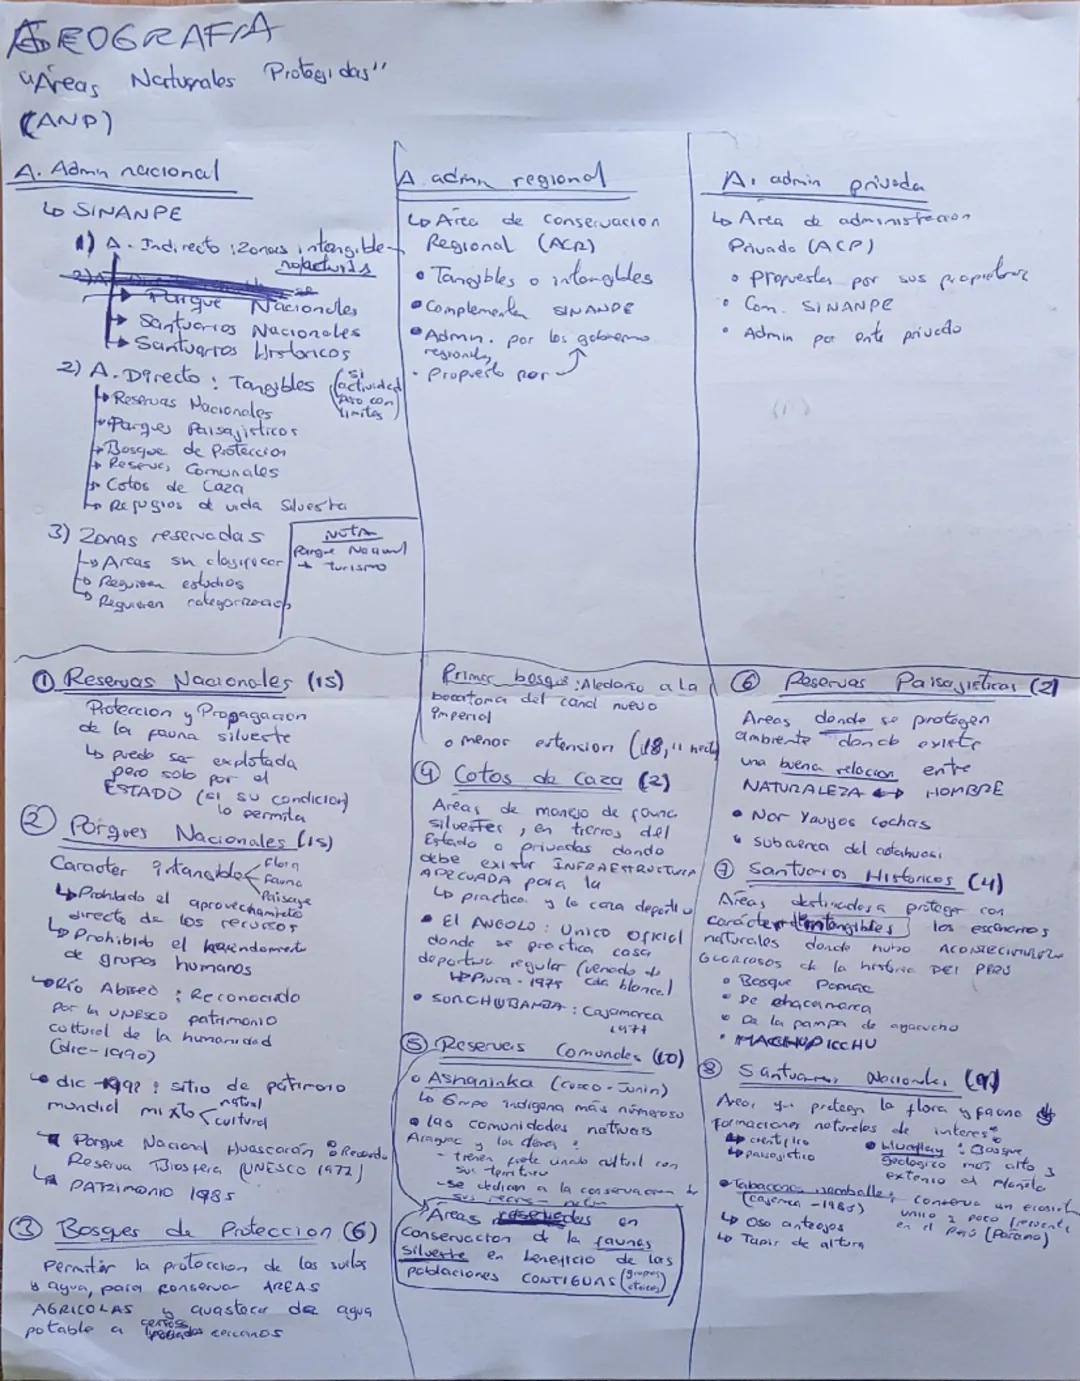 GEOGRAFIA
"Áreas Naturales Protegidas"
(ANP)
A. Admn nacional
↳ SINANPE
1) A. Indirecto : Zonas intangibles
→ Parque Nacionales
→ Santuarios Nacionales
→ Santuarios Historicos
2) A. Directo : Tangibles (si actividad
pero con limites)
→ Reservas Nacionales
→ Parques Paisajisticos
→ Bosque de Proteccion
→ Reservas Comunales
→ Cotos de Caza
→ Refugios de vida Silvestre
3) Zonas reservadas
↳ Areas sin clasificar
↳ Requieren estudios
↳ Requieren categorizacion
NOTA
Parque Nacional
→ Turismo
A. admn regional
↳ Area de Conservacion
Regional (ACR)
• Tangibles o intangibles
• Complementan SINANPE
• Admn. por los gobierno
regionales
• Propuesto por
A. admin privada
↳ Area de administracion
Privada (ACP)
• propuestas por sus propietarios
• Com. SINANPE
• Admin por ente privado
① Reservas Nacionales (15)
Proteccion y Propagacion
de la fauna silvestre
↳ puede ser explotada
pero solo por el
ESTADO (si su condicion)
lo permita
② Parques Nacionales (15)
Caracter intangible < Flora
Fauna
Paisaje
↳ Prohibido el aprovechamiento
directo de los recursos
↳ Prohibido el
de grupos humanos
↳ Río Abiseo : Reconocido
por la UNESCO patrimonio
cultural de la humanidad
(dic-1990)
• dic 1992 : sitio de patimonio
mundial mixto < natural
cultural
Parque Nacional Huascarán :
Reserva Biosfera (UNESCO 1977)
↳ PATRIMONIO 1985
③ Bosques de Proteccion (6)
Permitir la proteccion de los suelos
y agua, para conservar AREAS
AGRICOLAS y avastecer de agua
potable a poblados cercanos
Primer bosque : Aledaño a la
bocatoma del canal nuevo
imperial
o menor extension (18,11 hect)
④ Cotos de Caza (2)
Areas de manejo de fauna
silvestre, en tierras del
Estado o privadas donde
debe existir INFRAESTRUCTURA
ADECUADA para la
↳ practica y la caza deportiva
• El ANGOLO : Unico oficial
donde se practica casa
deportiva regular (venado de
cola blanca)
↳ Piura - 1975
• SUNCHUBAMBA : Cajamarca
1977
⑤ Reservas Comunales (10)
• Ashaninka (cusco - Junin)
↳ Grupo indigena más numeroso
• las comunidades nativas
y los demas :
- tienen fuerte cultural con
sus territorio
- se dedican a la conservacion de
sus
Areas reservadas en
conservacion de la fauna
silvestre en beneficio de las
poblaciones CONTIGUAS (grupos
etnicos)
⑥ Reservas Paisajisticas (2)
Areas donde se protegen
ambiente donde existe
una buena relacion entre
NATURALEZA ↔ HOMBRE
• Nor Yauyos cochas
• subcuenca del cotahuasi
⑦ Santuarios Historicos (4)
Áreas destinadas a proteger con
carácter intangibles los escenarios
naturales donde hubo ACONTECIMIENTOS
GLORIOSOS de la historia DEL PERU
• Bosque Pomac
• De chacamarca
• De la pampa de ayacucho
• MACHUPICCHU
⑧ Santuarios Nacionales (9)
Areas que protegen la flora y fauna y
formaciones naturales de interes :
↳ cientifico
↳ paisajistico
• Huayllay : Bosque
geologico más alto y
extenso del planeta
• Tabaconas namballe : conserva un ecosistema
(cajamarca - 1988) unico y poco frecuente
en el Perú (Páramo)
↳ Oso anteojos
↳ Tapir de altura